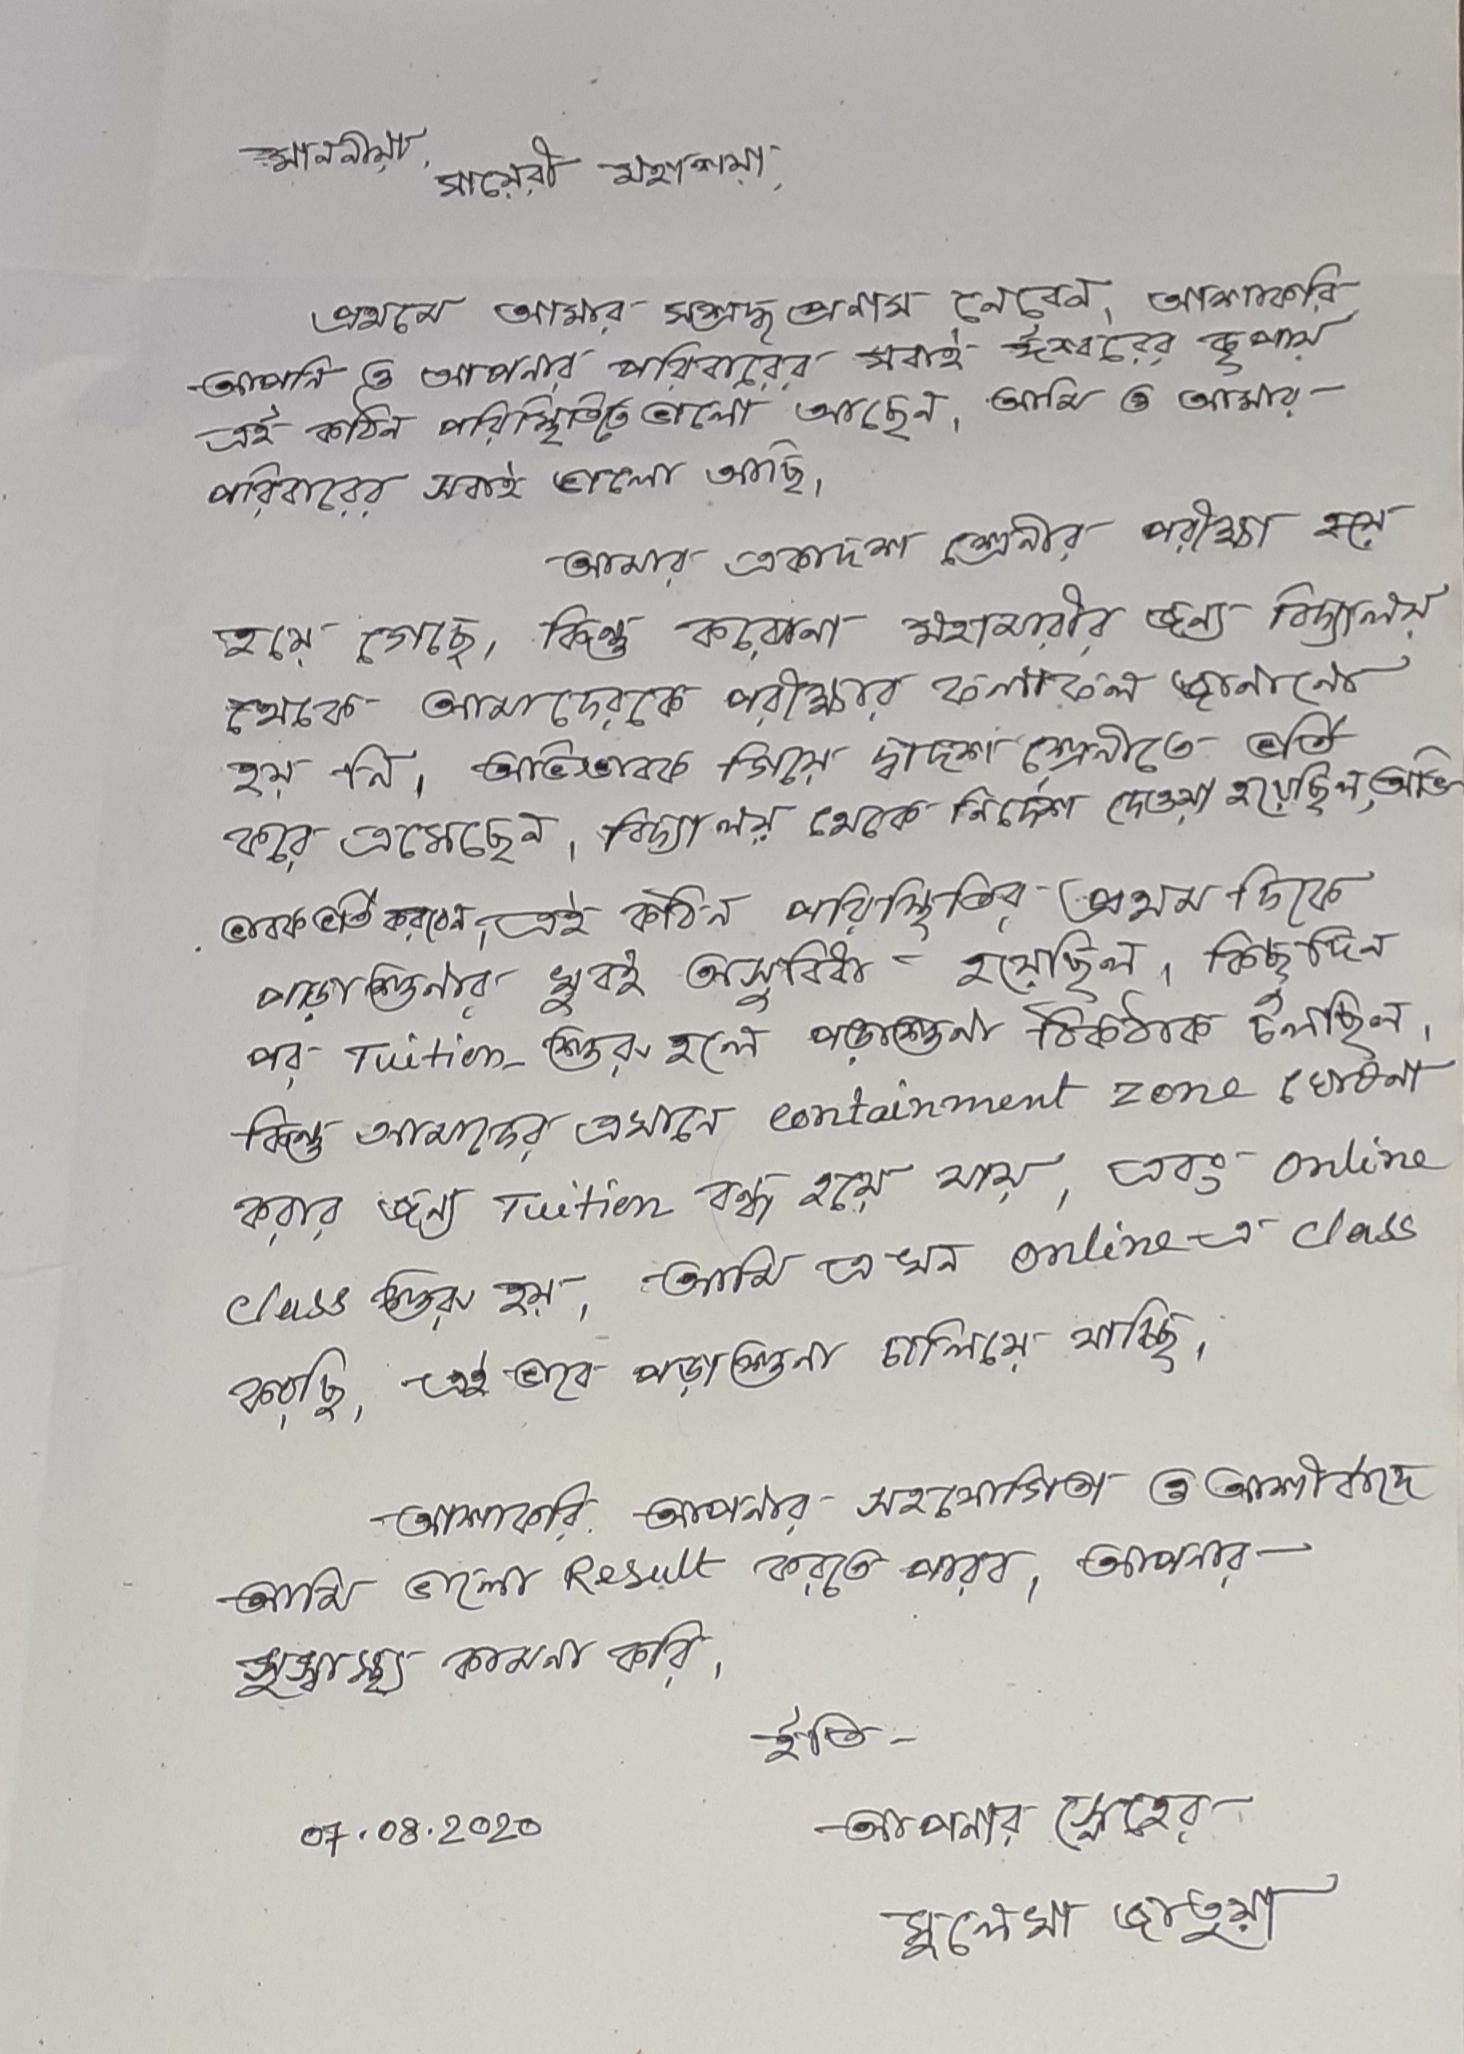 মাননীয়া,
সায়েরী মহাশয়া,
প্রথমে আমার সশ্রদ্ধ প্রনাম নেবেন, আশাকরি
আপনি ও আপনার পরিবারের সবাই ঈশ্বরের কৃপায়
এই কঠিন পরিস্থিতিতে ভালো আছেন, আমি ও আমার
পরিবারের সবাই ভালো আছি,
আমার একাদশ শ্রেনীর পরীক্ষা হয়ে
হয়ে গেছে, কিন্তু করোনা মহামারীর জন্য বিদ্যালয়
থেকে আমাদেরকে পরীক্ষার ফলাফল জানানো
হয় নি, অভিভাবক গিয়ে দ্বাদশ শ্রেনীতে ভর্তি
করে এসেছেন, বিদ্যালয় থেকে নির্দেশ দেওয়া হয়েছিল, অভি
ভাবক ভর্তি করবেন, এই কঠিন পরিস্থিতির প্রথম দিকে
পড়াশুনার খুবই অসুবিধা হয়েছিল, কিছুদিন
পর Tuition শুরু হলে পড়াশুনা ঠিকঠাক চলছিল,
কিন্তু আমাদের এখানে containment zone ঘোষনা
করার জন্য Tuition বন্ধ হয়ে যায়, এবং online
class শুরু হয়, আমি এখন online এ class
করছি, এই ভাবে পড়াশুনা চালিয়ে যাচ্ছি,
আশাকরি আপনার সহযোগিতা ও আশীর্বাদে
আমি ভালো Result করতে পারব, আপনার
সুস্বাস্থ্য কামনা করি,
ইতি -
07.08.2020 আপনার স্নেহের
সুলেখা জাতুয়া